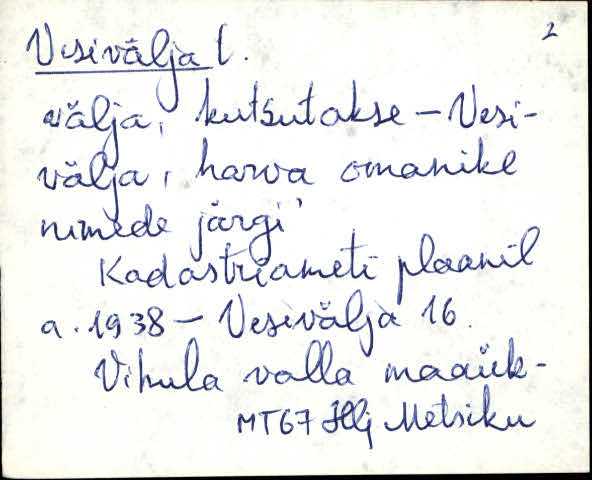 2
Vesivälja t.
välja, kutsutakse – Vesi-
välja, harva omanike
nimede järgi'
Kadastriameti plaanil
a. 1938 – Vesivälja 16.
Vihula valla maaük-
MT67 Hlj Metsiku